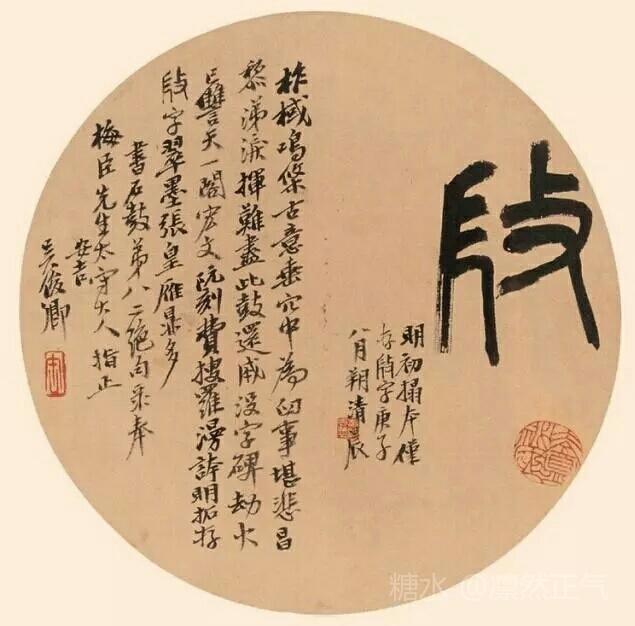 明初搨本僅
存字庚子
八月朔清晨
柞棫鳴條古意垂穴中為臼事堪悲昌
黎涕淚揮難盡此鼓還成沒字碑劫火
已讐天一閣宏文阮刻費搜羅漫誇明拓存
字翠墨張皇雁鼎多
書石鼓弟八二絕句奉
梅臣先生太守大人 指正
安吉
吳俊卿
糖水 @凛然正气